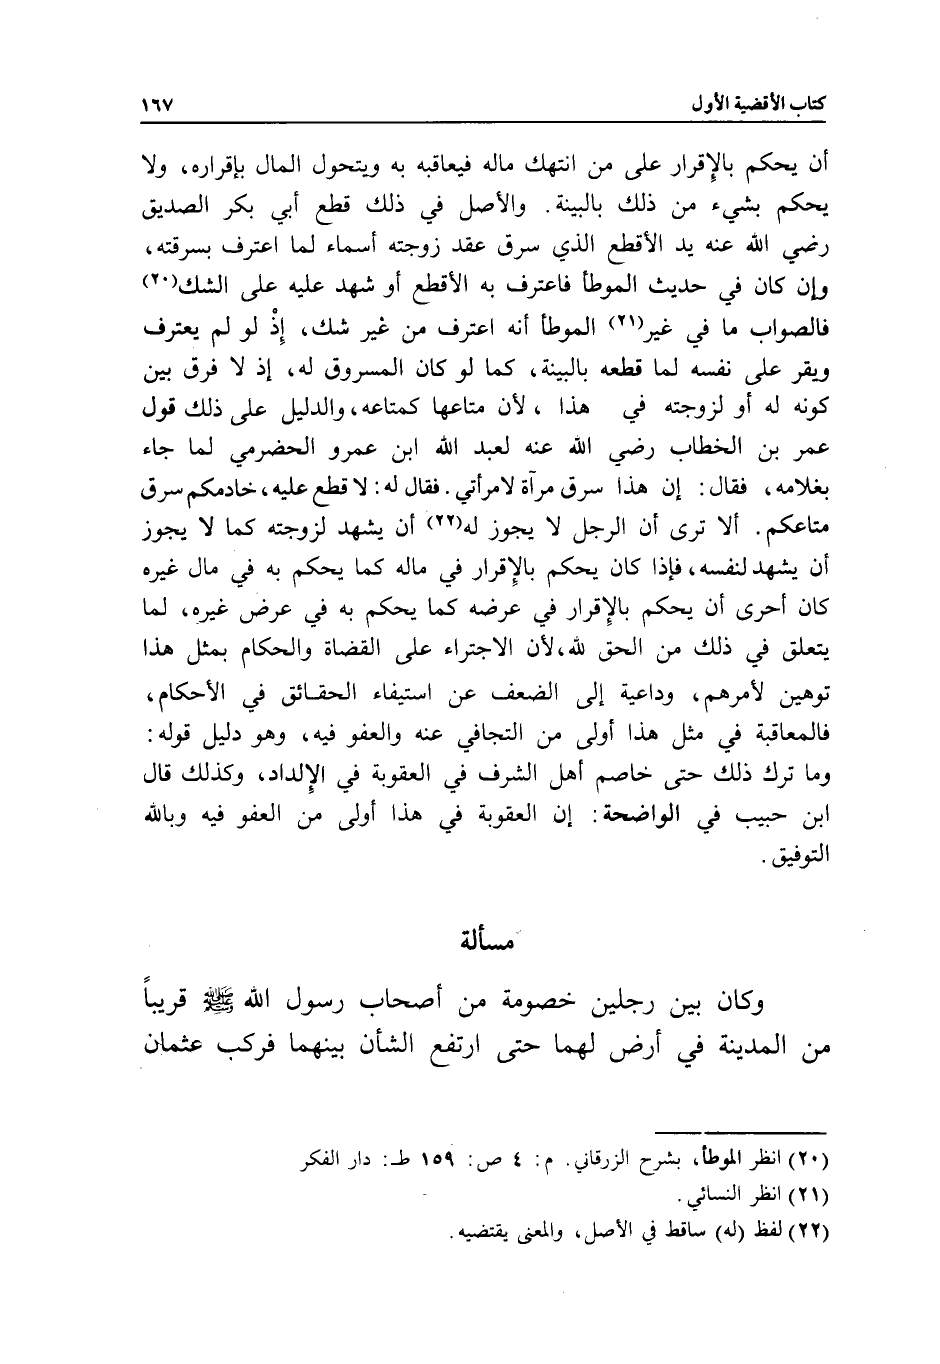 كتاب الأقضية الأول ١٦٧
أن يحكم بالإِقرار على من انتهك ماله فيعاقبه به ويتحول المال بإقراره، ولا
يحكم بشيء من ذلك بالبينة. والأصل في ذلك قطع أبي بكر الصديق
رضي الله عنه يد الأقطع الذي سرق عقد زوجته أسماء لما اعترف بسرقته،
وإن كان في حديث الموطأ فاعترف به الأقطع أو شهد عليه على الشك(٢٠)
فالصواب ما في غير(٢١) الموطأ أنه اعترف من غير شك، إِذْ لو لم يعترف
ويقر على نفسه لما قطعه بالبينة، كما لو كان المسروق له، إذ لا فرق بين
كونه له أو لزوجته في هذا ، لأن متاعها كمتاعه، والدليل على ذلك قول
عمر بن الخطاب رضي الله عنه لعبد الله ابن عمرو الحضرمي لما جاء
بغلامه، فقال: إن هذا سرق مرآة لامرأتي. فقال له: لا قطع عليه، خادمكم سرق
متاعكم. ألا ترى أن الرجل لا يجوز له(٢٢) أن يشهد لزوجته كما لا يجوز
أن يشهد لنفسه، فإذا كان يحكم بالإِقرار في ماله كما يحكم به في مال غيره
كان أحرى أن يحكم بالإِقرار في عرضه كما يحكم به في عرض غيره، لما
يتعلق في ذلك من الحق لله، لأن الاجتراء على القضاة والحكام بمثل هذا
توهين لأمرهم، وداعية إلى الضعف عن استيفاء الحقائق في الأحكام،
فالمعاقبة في مثل هذا أولى من التجافي عنه والعفو فيه، وهو دليل قوله:
وما ترك ذلك حتى خاصم أهل الشرف في العقوبة في الإِلداد، وكذلك قال
ابن حبيب في الواضحة: إن العقوبة في هذا أولى من العفو فيه وبالله
التوفيق.
مسألة
وكان بين رجلين خصومة من أصحاب رسول الله ﷺ قريباً
من المدينة في أرض لهما حتى ارتفع الشأن بينهما فركب عثمان
(٢٠) انظر الموطأ، بشرح الزرقاني. م: ٤ ص: ١٥٩ طـ: دار الفكر
(٢١) انظر النسائي.
(٢٢) لفظ (له) ساقط في الأصل، والمعنى يقتضيه.